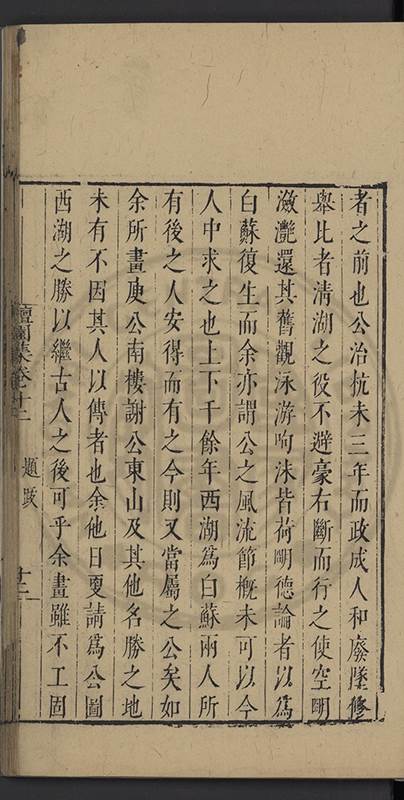 者之前也公治杭未三年而政成人和廢墜修
舉比者清湖之役不避豪右斷而行之使空明
瀲灔還其舊觀泳游呴沫皆荷明德論者以爲
白蘇復生而余亦謂公之風流節概未可以今
人中求之也上下千餘年西湖爲白蘇兩人所
有後之人安得而有之今則又當屬之公矣如
余所畫庾公南樓謝公東山及其他名勝之地
未有不因其人以傳者也余他日更請爲公圖
西湖之勝以繼古人之後可乎余畫雖不工固
檀園集卷十二
題跋
廿二